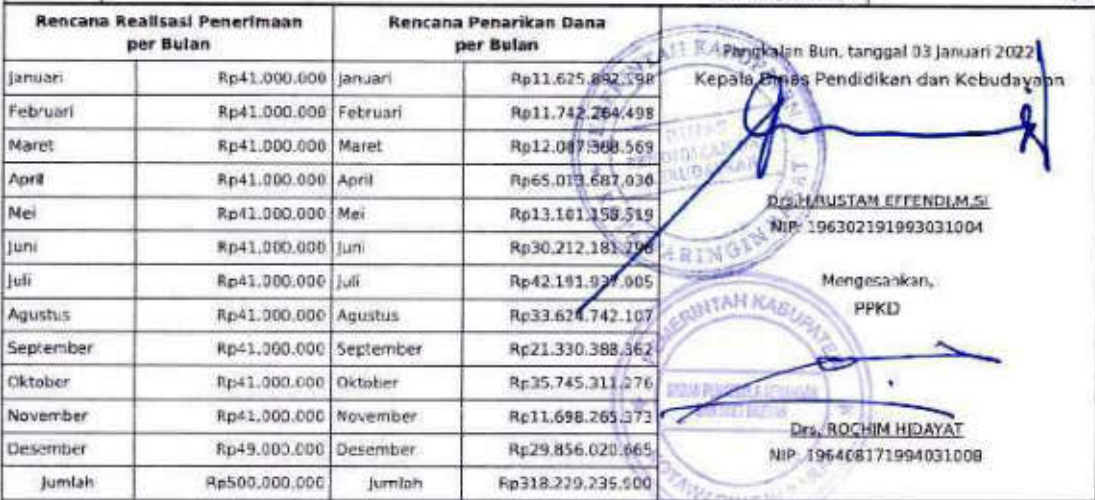 Rencana Realisasi Penerimaan per Bulan Rencana Penarikan Dana per Bulan
Januari Rp41.000.000 Januari Rp11.625.892.198
Februari Rp41.000.000 Februari Rp11.742.264.498
Maret Rp41.000.000 Maret Rp12.087.388.569
April Rp41.000.000 April Rp65.013.687.030
Mei Rp41.000.000 Mei Rp13.101.158.519
Juni Rp41.000.000 Juni Rp30.212.181.298
Juli Rp41.000.000 Juli Rp42.191.937.005
Agustus Rp41.000.000 Agustus Rp33.624.742.107
September Rp41.000.000 September Rp21.330.388.362
Oktober Rp41.000.000 Oktober Rp35.745.311.276
November Rp41.000.000 November Rp11.698.265.373
Desember Rp49.000.000 Desember Rp29.856.020.665
Jumlah Rp500.000.000 Jumlah Rp318.229.235.900
Pangkalan Bun, tanggal 03 Januari 2022
Kepala Dinas Pendidikan dan Kebudayaan
Drs.H.RUSTAM EFFENDI,M.SI
NIP: 196302191993031004
Mengesahkan,
PPKD
Drs, ROCHIM HIDAYAT
NIP. 196408171994031008
PEMERINTAH KABUPATEN